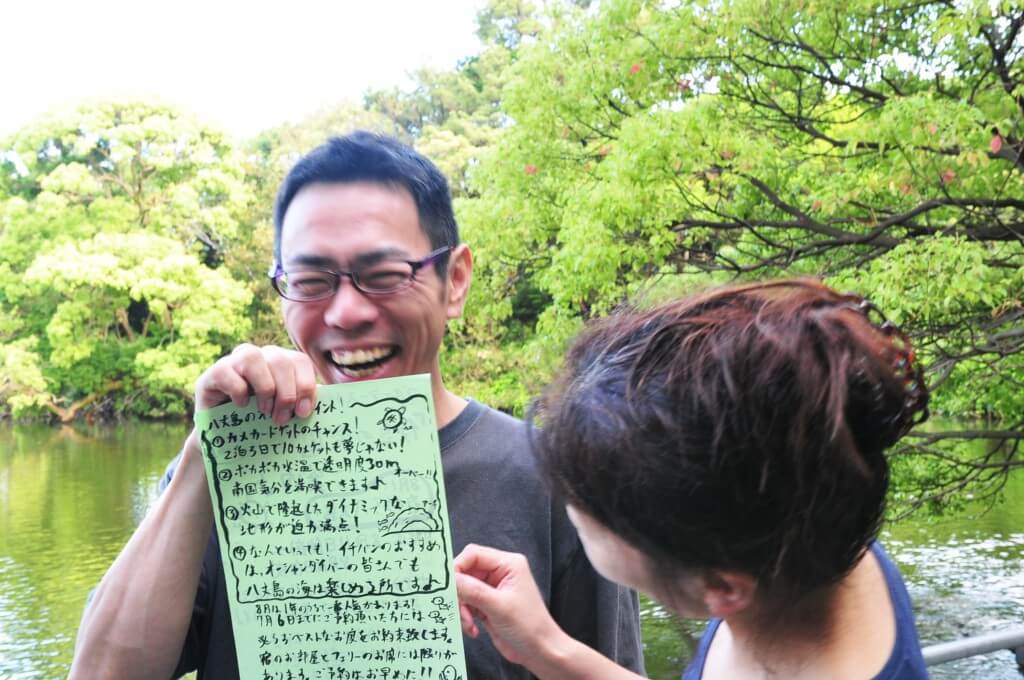 八丈島の イント!
①カメカードゲットのチャンス!
2泊3日で10カメゲットも夢じゃない!
②ポカポカ水温で透明度30mオーバー!!
南国気分を満喫できます♪
③火山で隆起したダイナミックな
地形が迫力満点!
④なんといっても!イチバンのおすすめ
は、オーシャンダイバーの皆さんでも
八丈島の海は楽しめる所です♪
8月は1年のうちで一番人気があります!
7月6日までにご予約頂いた方には
必らずベストなお席をお約束致します。
宿のお部屋とフェリーのお席には限りが
あります。ご予約はお早めに!!